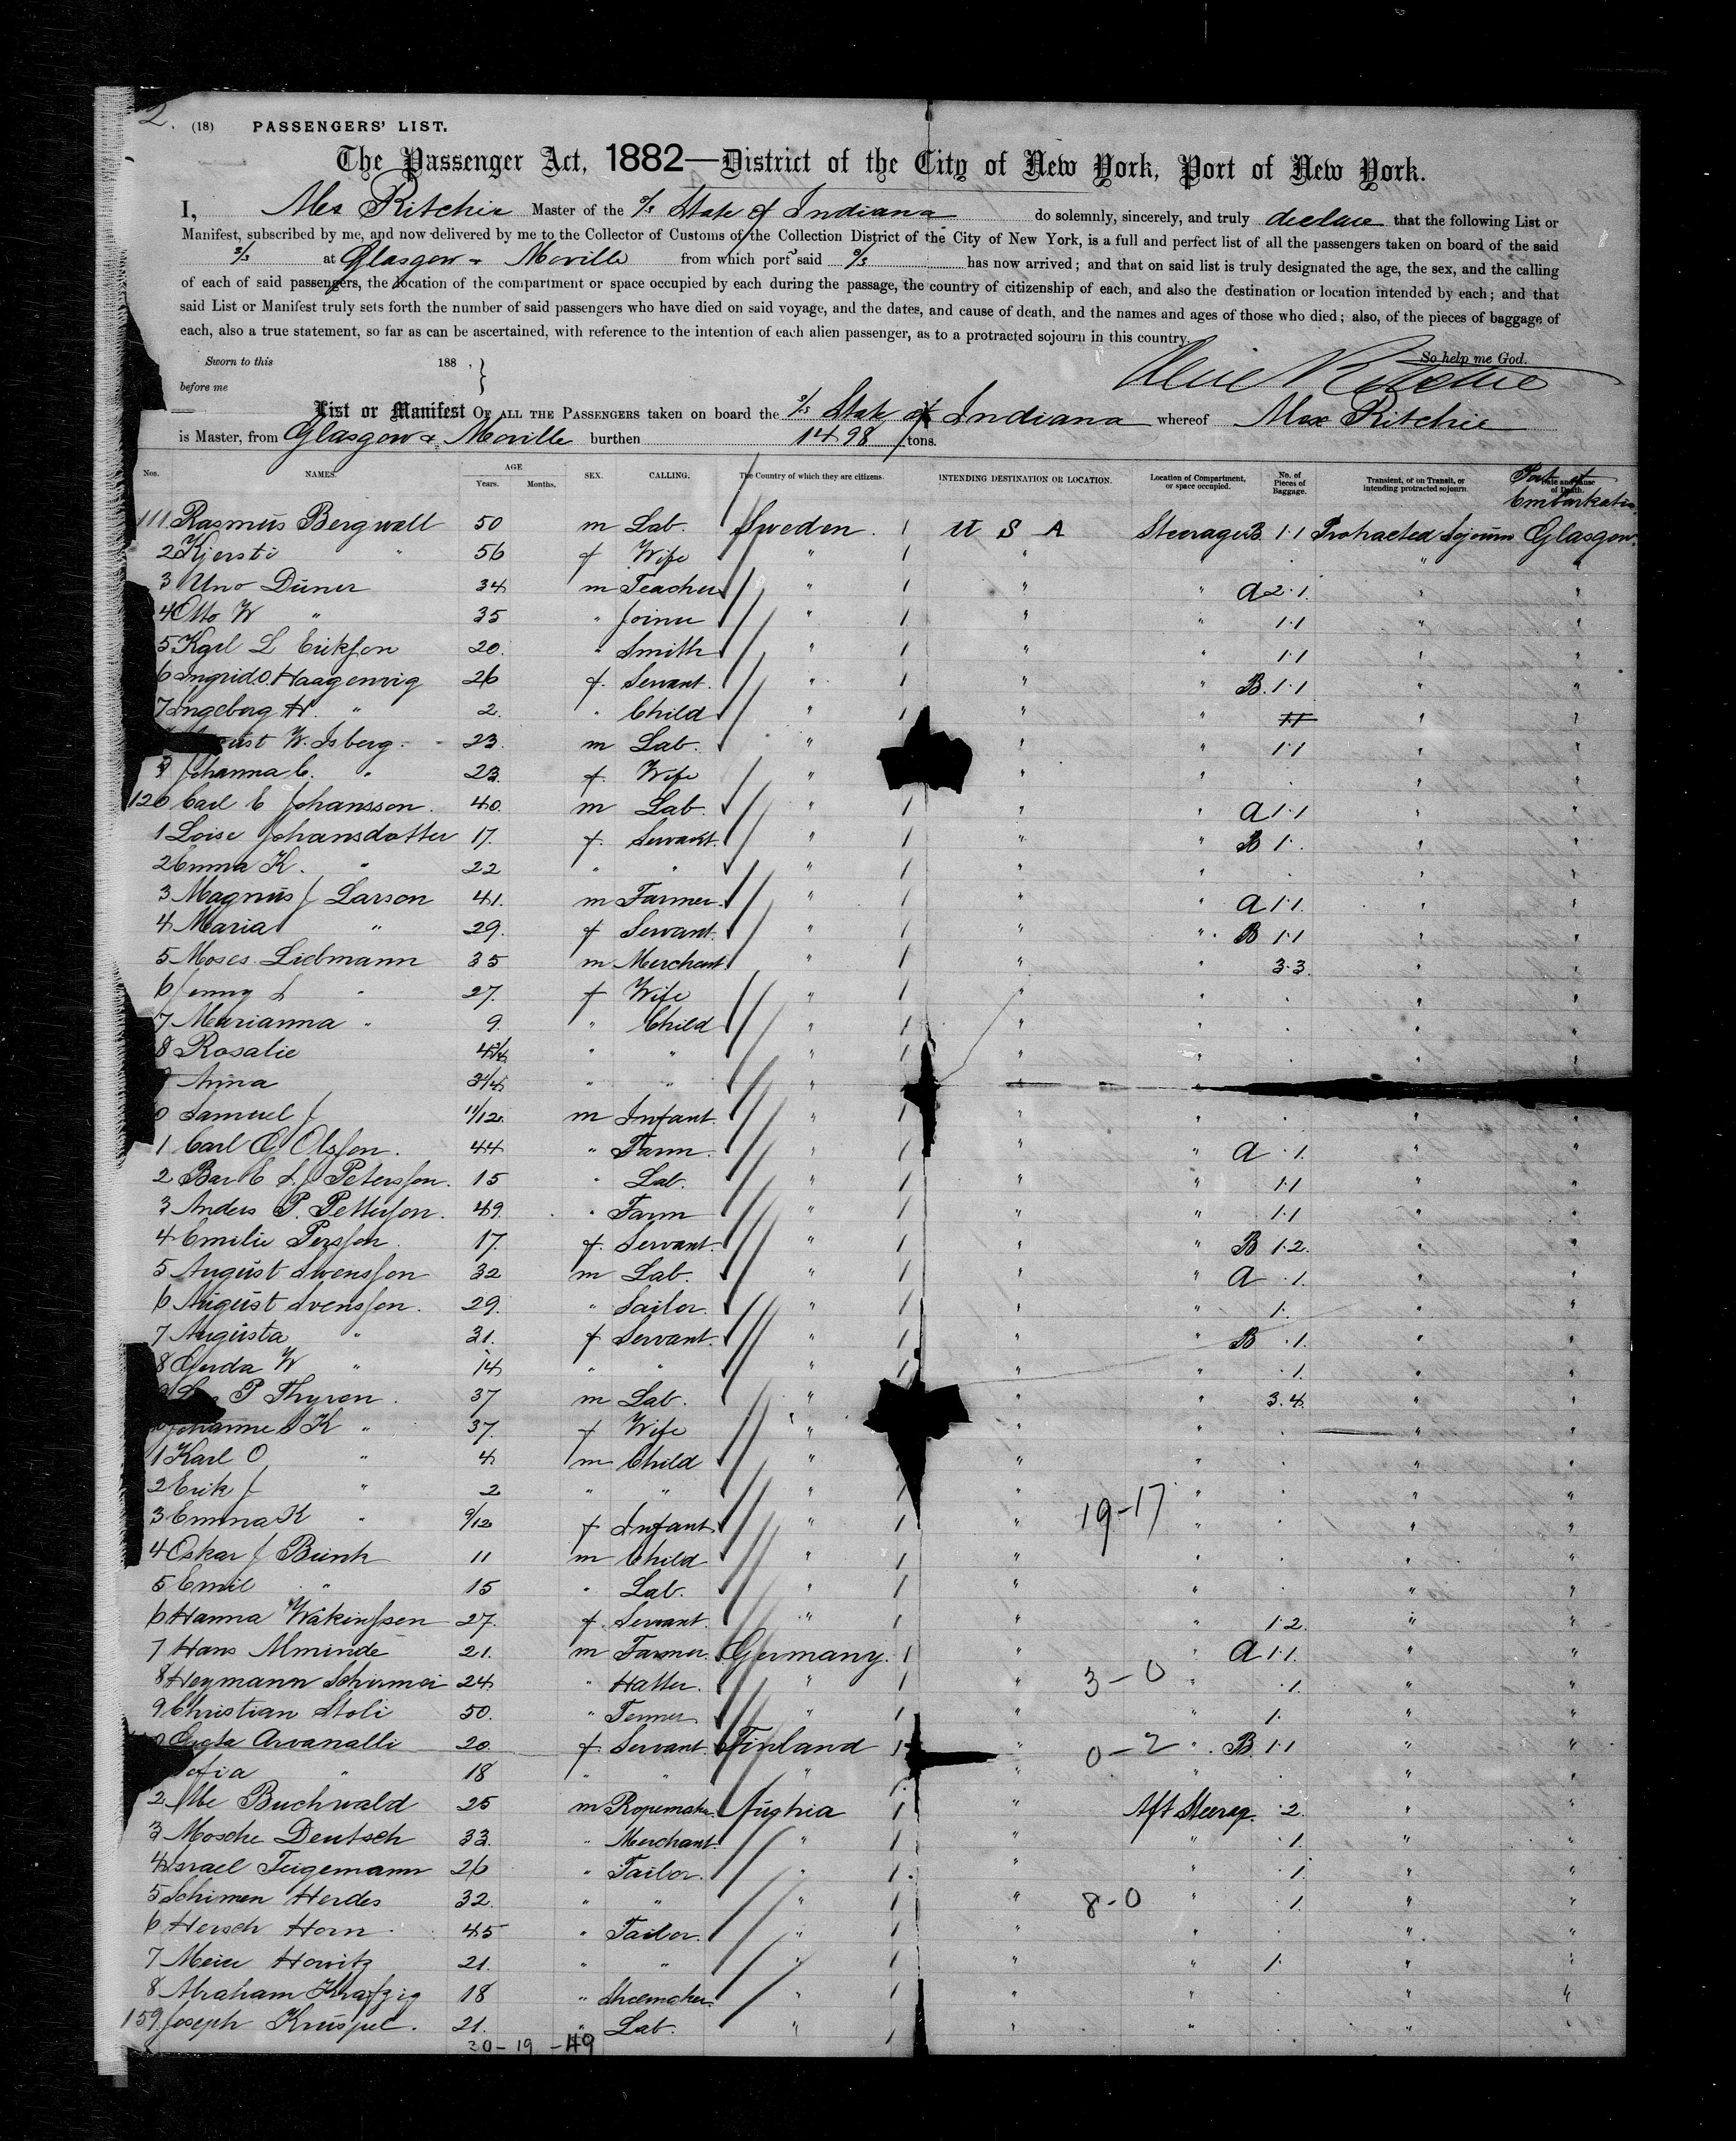 2.
(18) PASSENGERS' LIST.
The Passenger Act, 1882—District of the City of New York, Port of New York.
I, Alex Ritchie Master of the S/S State of Indiana do solemnly, sincerely, and truly declare that the following List or
Manifest, subscribed by me, and now delivered by me to the Collector of Customs of the Collection District of the City of New York, is a full and perfect list of all the passengers taken on board of the said
S/S at Glasgow & Moville from which port said S/S has now arrived; and that on said list is truly designated the age, the sex, and the calling
of each of said passengers, the location of the compartment or space occupied by each during the passage, the country of citizenship of each, and also the destination or location intended by each; and that
said List or Manifest truly sets forth the number of said passengers who have died on said voyage, and the dates, and cause of death, and the names and ages of those who died; also, of the pieces of baggage of
each, also a true statement, so far as can be ascertained, with reference to the intention of each alien passenger, as to a protracted sojourn in this country.
So help me God.
Sworn to this 188 , }
before me
Alex Ritchie
List or Manifest OF ALL THE PASSENGERS taken on board the S/S State of Indiana whereof Alex Ritchie
is Master, from Glasgow & Moville burthen 1498 tons.
Nos. NAMES. AGE Years. Months. SEX. CALLING. The Country of which they are citizens. INTENDING DESTINATION OR LOCATION. Location of Compartment, or space occupied. No. of Pieces of Baggage. Transient, or on Transit, or intending protracted sojourn. Date and Cause of Death. Port of Embarkation
111 Rasmus Bergwall 50 m Lab. Sweden. 1 U S A Steerage B 1·1 Protracted Sojourn Glasgow.
2 Kjersti " 56 f Wife " 1 " " "
3 Uno Duner 34 m Teacher " 1 " " a 2·1. " "
4 Otto W " 35 " Joiner " 1 " " 1·1 " "
5 Karl L Erikson 20. " Smith " 1 " " 1·1 " "
6 Ingrid O. Haagenvig 26 f. Servant. " 1 " " B. 1·1 " "
7 Ingeborg H. " 2. " Child " 1 " " " "
W. Isberg. 23. m Lab. " " " 1·1 " "
9 Johanna C. " 23. f. Wife " " " " "
120 Carl E Johansson. 40. m Lab. " 1 " " a 1·1 " "
1 Loise Johansdotter 17. f. Servant. " 1 " " B 1· " "
2 Emma K. " 22 " " " 1 " " " "
3 Magnus J Larson 41. m Farmer. " 1 " " a 1·1. " "
4 Maria " 29. f Servant. " 1 " " B 1·1 " "
5 Moses Liebmann 35 m Merchant. " 1 " " 3·3. " "
6 Jenny L " 27. f Wife " 1 " " " "
7 Marianna " 9. " Child " 1 " " " "
8 Rosalie " " " 1 " " " "
9 Anna " " " " " "
0 Samuel J 11/12. m Infant. " " " " "
1 Carl G Olsson. 44 " Farm. " 1 " " a ·1. " "
2 Petersson. 15 " Lab. " 1 " " 1·1 " "
3 Anders P. Petterson. 49. " Farm " 1 " " 1·1 " "
4 Emilie Persson. 17. f. Servant. " 1 " " B 1·2. " "
5 August Swensson 32 m Lab. " 1 " " a ·1. " "
6 August Svensson. 29. " Sailor. " 1 " " 1· " "
7 Augusta " 31. f Servant. " 1 " " B ·1. " "
8 Gerda W " 14 " " " 1 " " ·1. " "
P Thyren. 37 m Lab. " " " 3·4. " "
Johanne S K " 37. f Wife " " " " "
1 Karl O " 4 m Child " " " " "
2 Erik J " 2 " " " 1 " " " "
3 Emma K " 9/12 f Infant. " 1 " 19-17 " " "
4 Oskar J Bunk 11 m Child " 1 " " " "
5 Emil " 15 " Lab. " 1 " " " "
6 Hanna Wakensson 27. f. Servant. " 1 " " 1·2. " "
7 Hans Alminde 21. m Farmer. Germany. 1 " " a 1·1. " "
8 Heymann 24 " Hatter. " 1 " 3-0 " ·1. " "
9 Christian Stoli 50. " " 1 " " 1· " "
Arvanalli 20. f. Servant. Finland 1 " 0-2 " B. 1·1 " "
Sofia " 18 " " " " " " "
2 Abe Buchwald 25 m Ropemaker. Austria 1 " Aft Steerag. ·2. " "
3 Mosche Deutsch 33. " Merchant. " 1 " " ·1. " "
4 Israel Feigemann 26 " Tailor. " 1 " " ·1. " "
5 Schimen Herdes 32. " " " 1 " 8-0 " ·1. " "
6 Hersch Horn 45 " Tailor. " 1 " " " "
7 Meier Howitz 21. " " " 1 " " 1· " "
8 Abraham 18 " Shoemaker. " 1 " " " "
159 Joseph 21. " Lab. " 1 " " " "
30-19-49